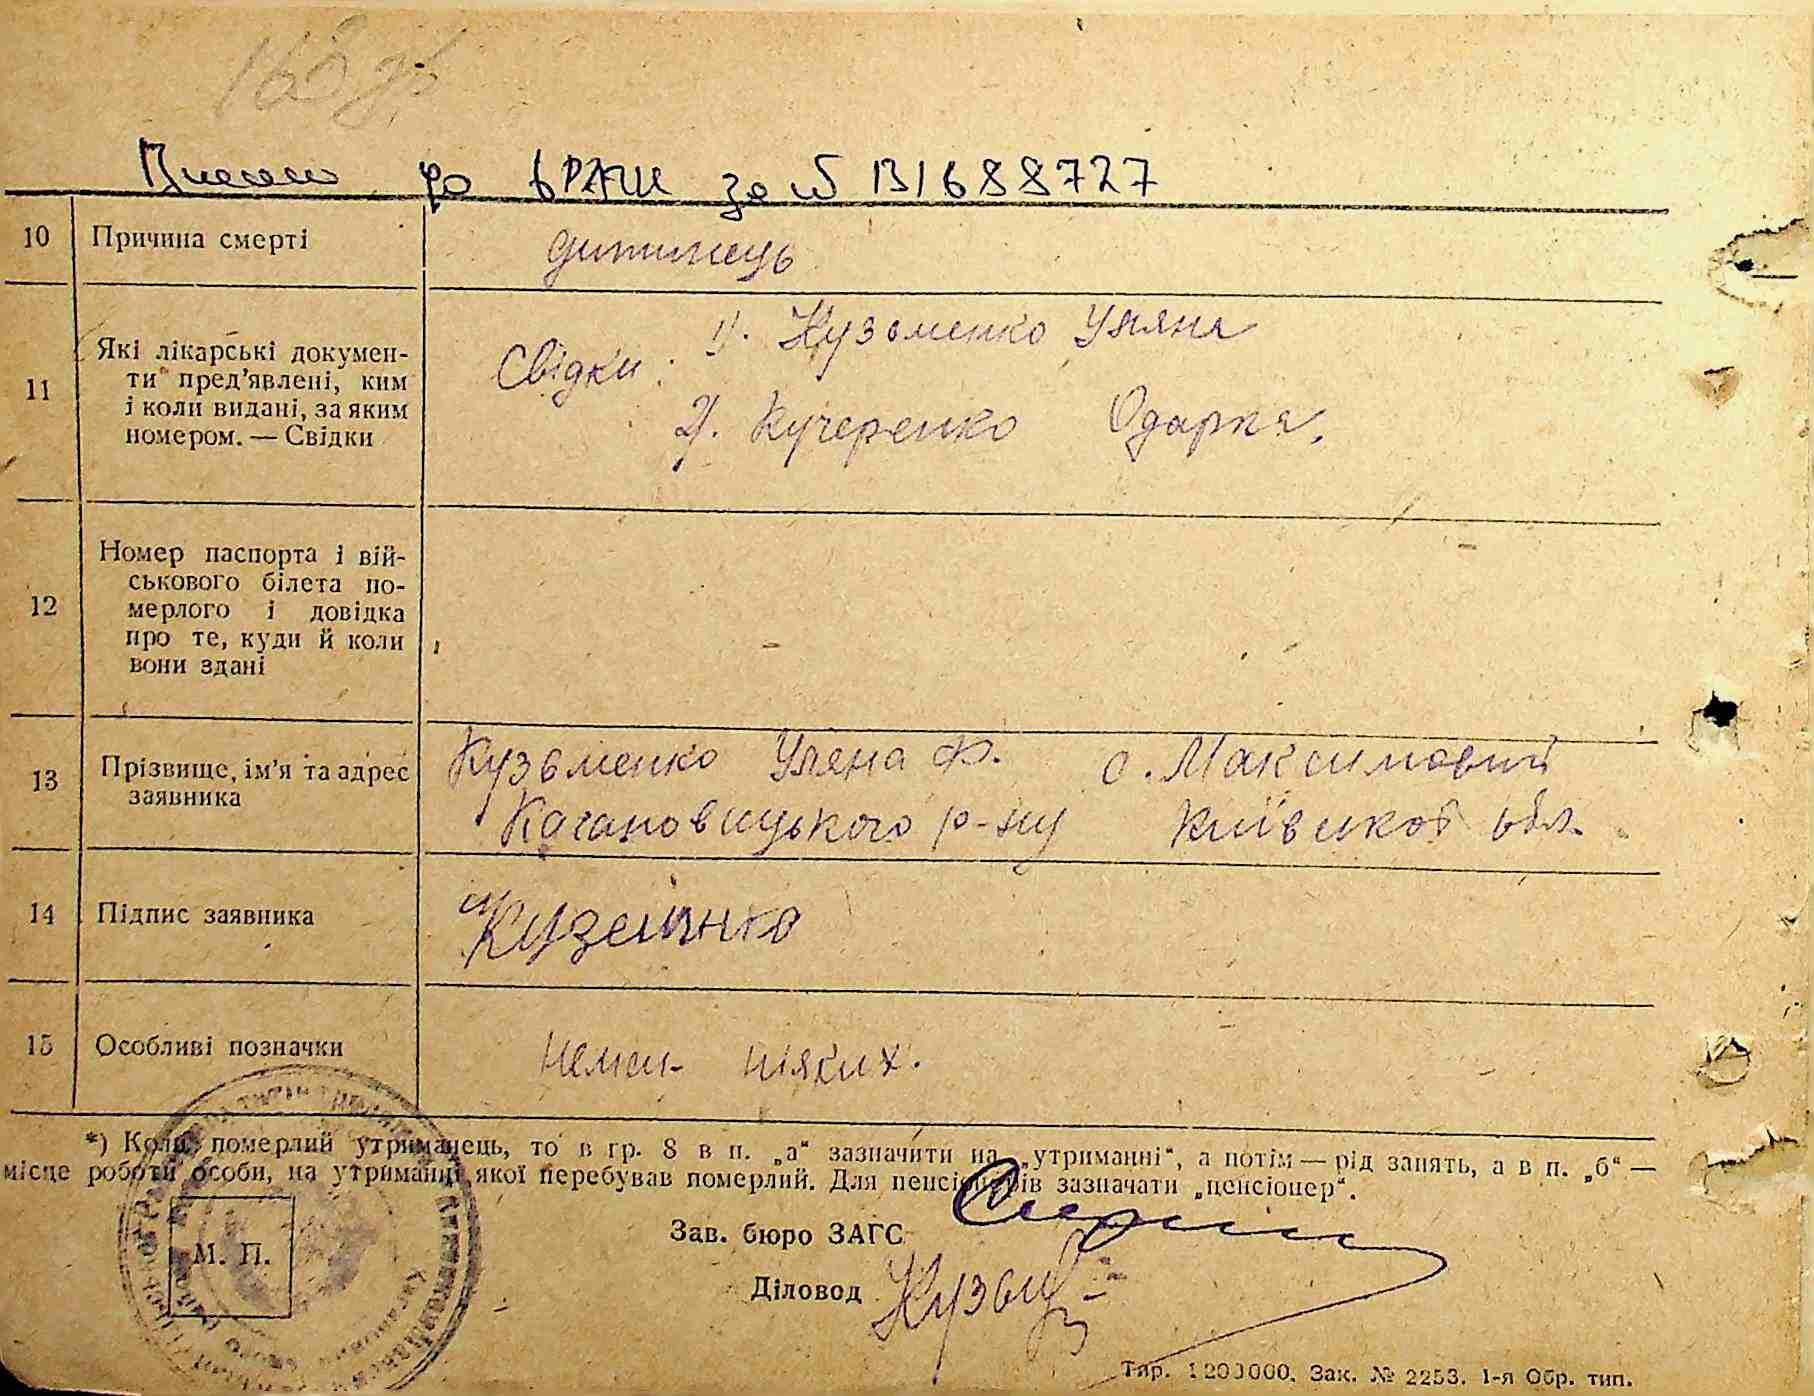 168 зв
Внесено до ВРАЦС за № 131688727
10 Причина смерті
дитинець
11 Які лікарські докумен-
ти пред'явлені, ким
і коли видані, за яким
номером. — Свідки
Свідки: 1). Кузьменко Уляна
2). Кучеренко Одарка.
12 Номер паспорта і вій-
ськового білета по-
мерлого і довідка
про те, куди й коли
вони здані
13 Прізвище, ім'я та адрес
заявника
Кузьменко Уляна Ф. с. Максимовичі
Кагановицького р-ну Київської обл.
14 Підпис заявника
15 Особливі позначки
немає ніяких.
*) Коли померлий утриманець, то в гр. 8 в п. „а“ зазначити на „утриманні“, а потім — рід занять, а в п. „б“ —
місце роботи особи, на утриманні якої перебував померлий. Для пенсіонерів зазначати „пенсіонер“.
М. П.
Зав. бюро ЗАГС
Діловод
Тир. 1200000. Зак. № 2253. 1-я Обр. тип.